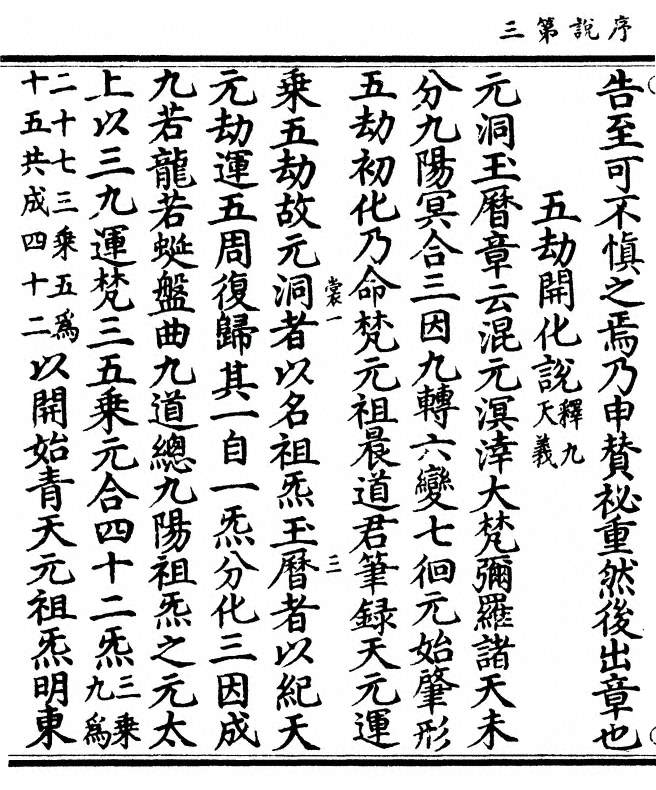 序說第三
告至可不愼之焉乃申贊祕重然後出章也
五劫開化說釋九天義
元洞玉曆章云混元溟涬大梵彌羅諸天未
分九陽冥合三因九轉六變七徊元始肇形
五劫初化乃命梵元祖晨道君筆録天元運
裳一 三
乘五劫故元洞者以名祖炁玉曆者以紀天
元劫運五周復歸其一自一炁分化三因成
九若龍若蜒盤曲九道總九陽祖炁之元太
上以三九運梵三五乘元合四十二炁三乘九爲
二十七三乘五爲十五共成四十二以開始青天元祖炁明東